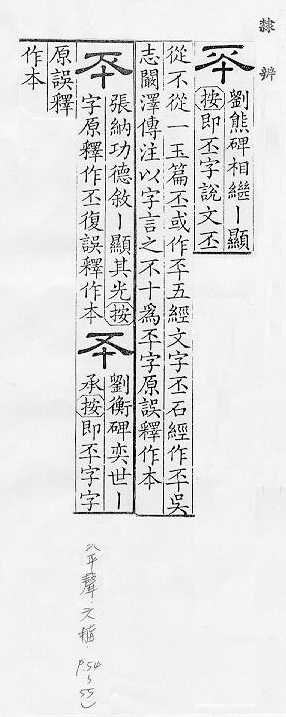 隸辨
㔻
劉熊碑相繼ー顯
按即丕字說文丕
從不從一玉篇丕或作㔻五經文字丕石經作㔻吳
志闞澤傳注以字言之不十為㔻字原誤釋作本
㔻
張納功德敘ー顯其光按
字原釋作丕復誤釋作本
㔻
劉衡碑奕世ー
承按即㔻字字
原誤釋
作本
(平聲.六脂 P.54~55)